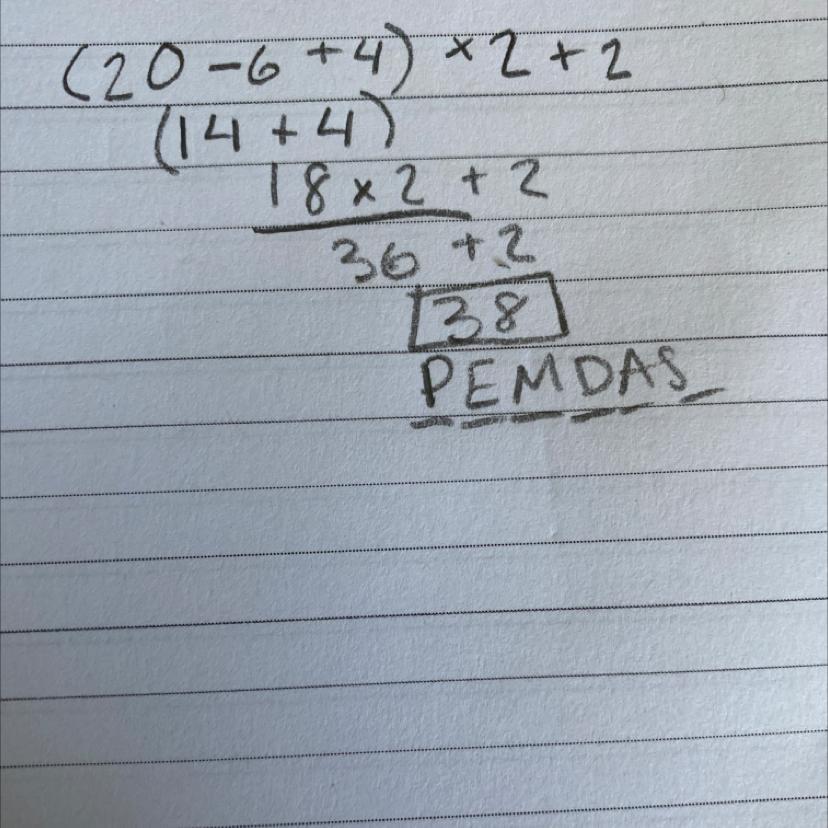 (20 - 6 + 4) × 2 + 2
(14 + 4)
18 × 2 + 2
36 + 2
38
PEMDAS